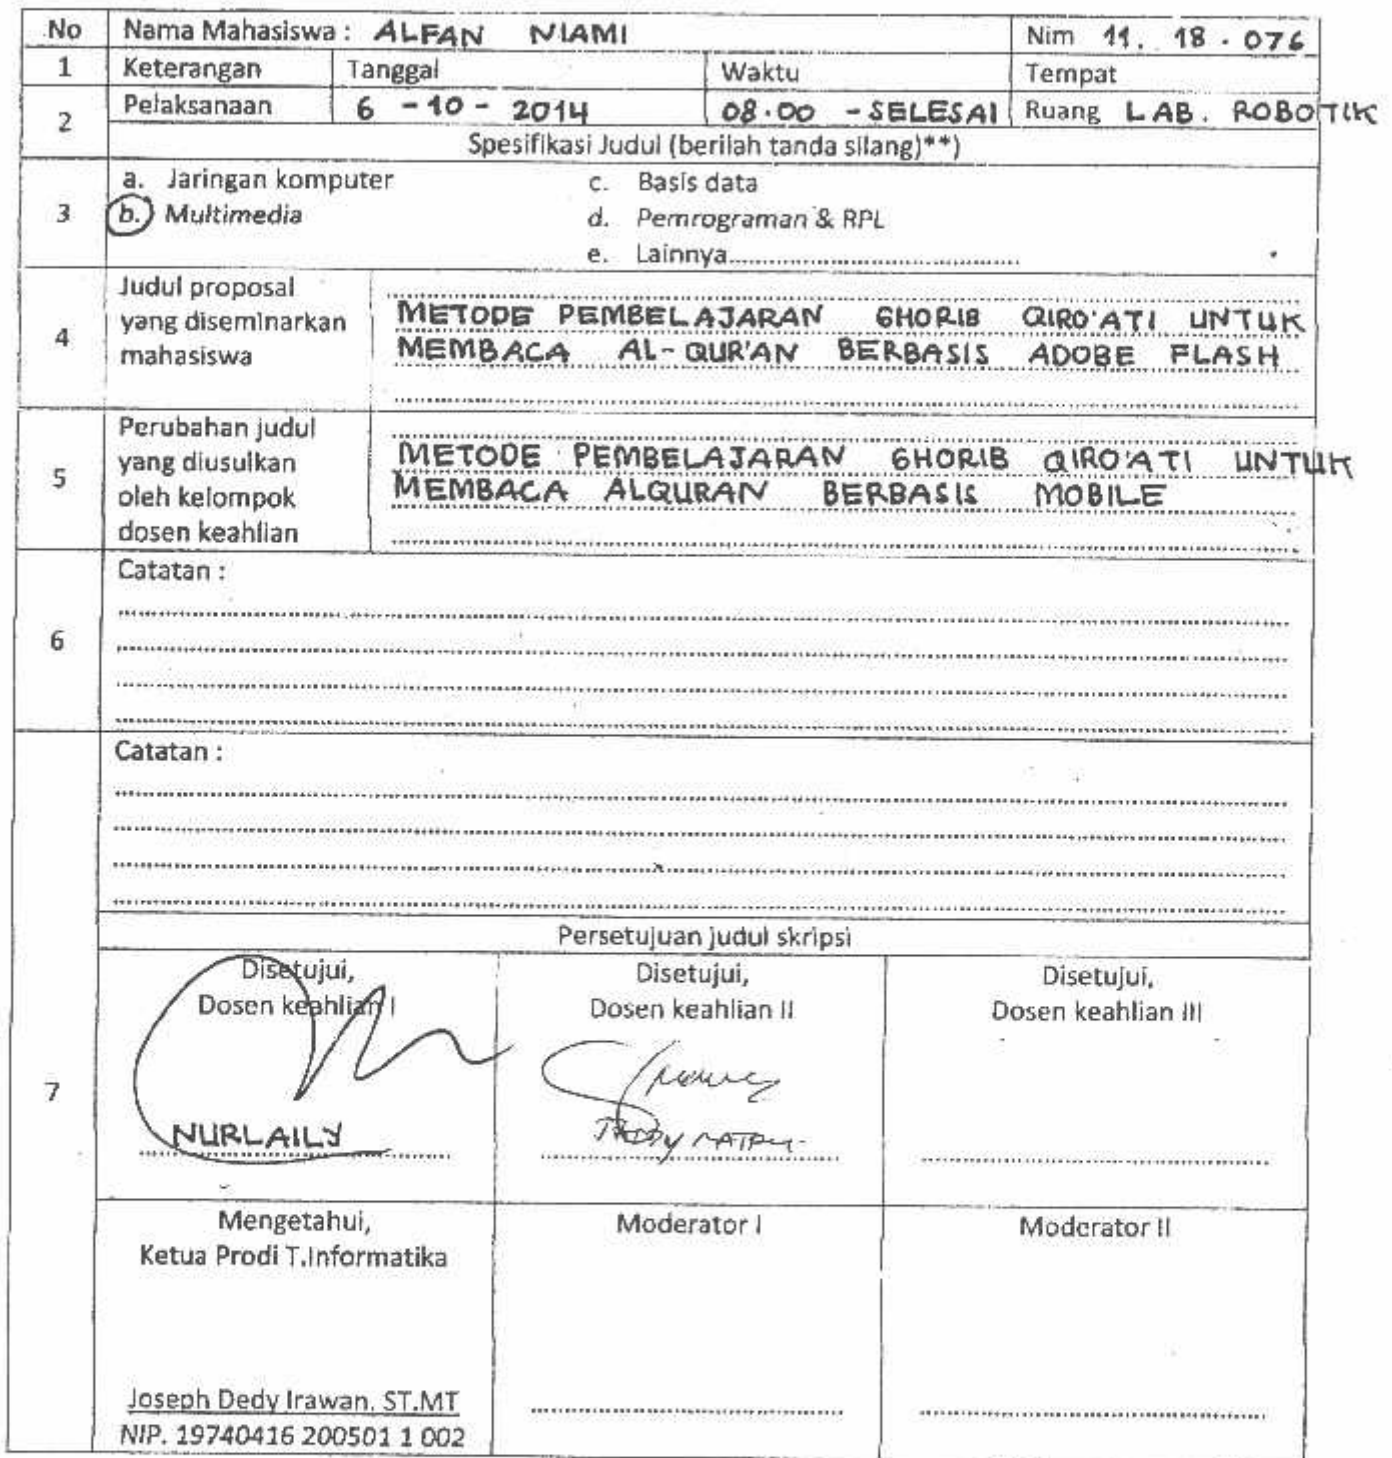 No Nama Mahasiswa : ALFAN NIAMI Nim 11. 18 . 076
1 Keterangan Tanggal Waktu Tempat
2 Pelaksanaan 6 - 10 - 2014 08.00 - SELESAI Ruang LAB. ROBOTIK
Spesifikasi Judul (berilah tanda silang)**)
3
a. Jaringan komputer
b. Multimedia
c. Basis data
d. Pemrograman & RPL
e. Lainnya
4
Judul proposal
yang diseminarkan
mahasiswa
METODE PEMBELAJARAN GHORIB QIRO'ATI UNTUK
MEMBACA AL-QUR'AN BERBASIS ADOBE FLASH
5
Perubahan judul
yang diusulkan
oleh kelompok
dosen keahlian
METODE PEMBELAJARAN GHORIB QIRO'ATI UNTUK
MEMBACA ALQURAN BERBASIS MOBILE
6
Catatan :
Catatan :
7
Persetujuan judul skripsi
Disetujui,
Dosen keahlian I
NURLAILY
Disetujui,
Dosen keahlian II
Disetujui,
Dosen keahlian III
Mengetahui,
Ketua Prodi T.Informatika
Joseph Dedy Irawan, ST.MT
NIP. 19740416 200501 1 002
Moderator I
Moderator II